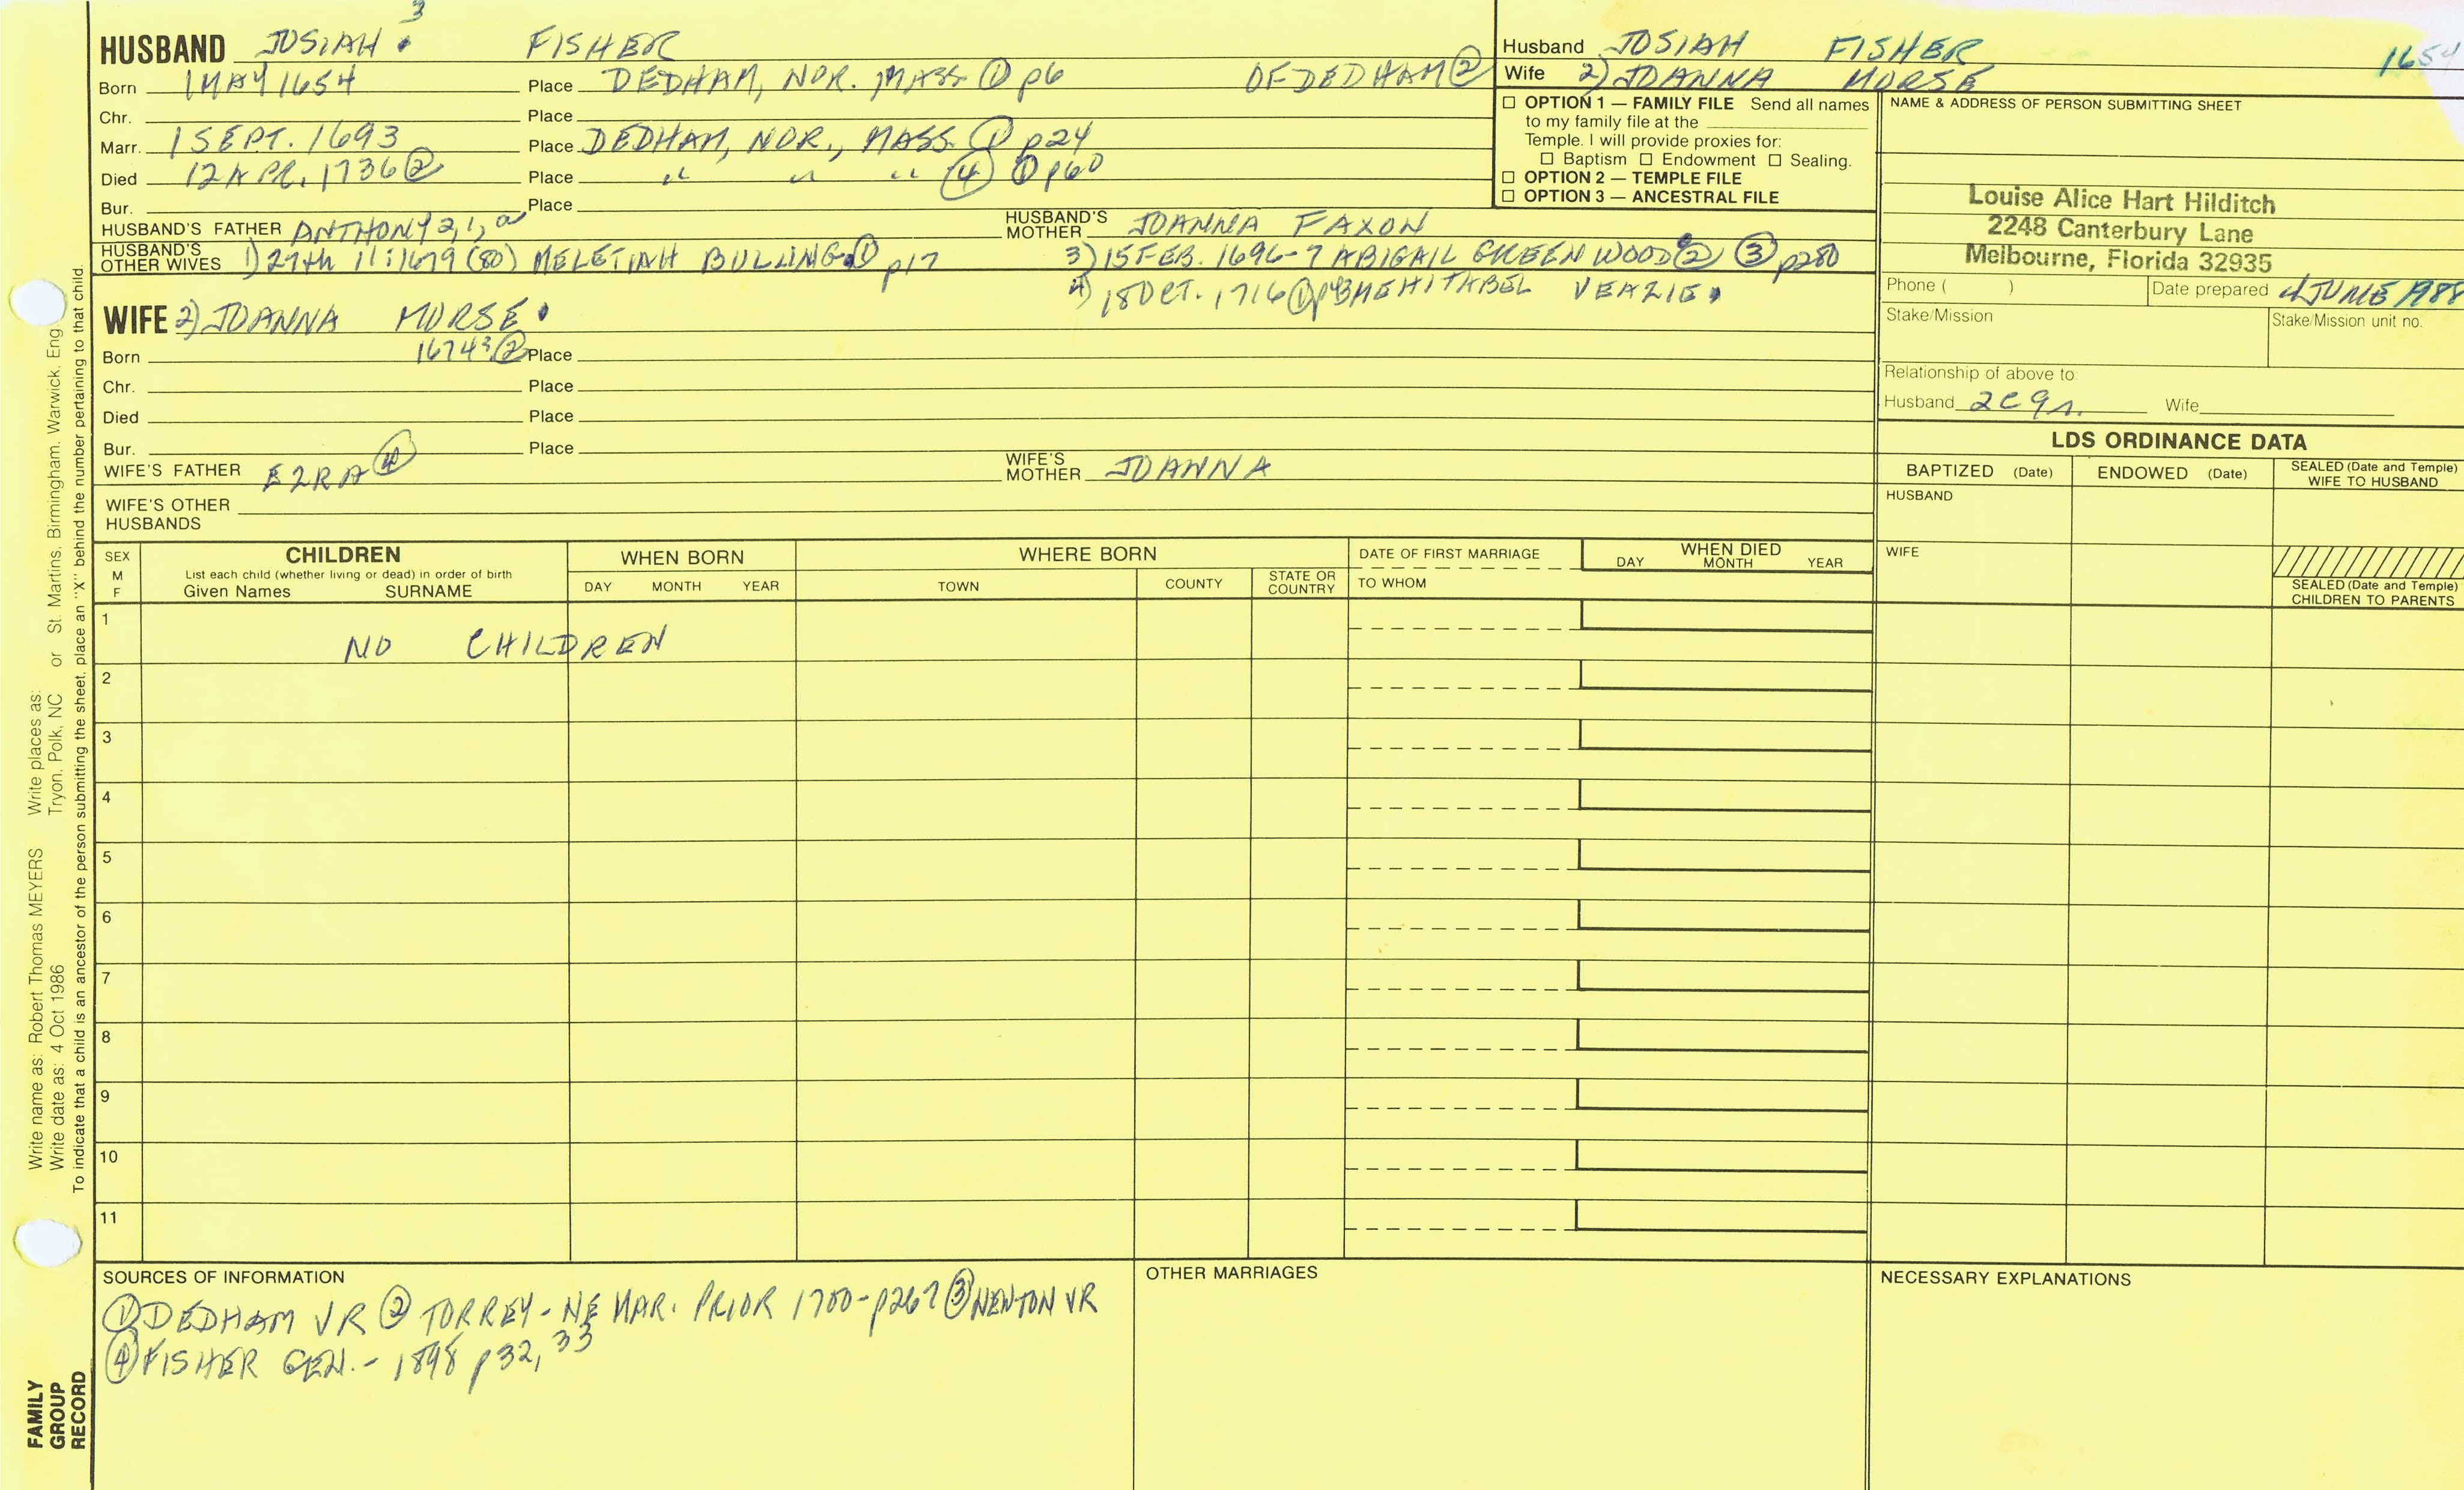 3
HUSBAND JOSIAH FISHER
Born 1 MAY 1654 Place DEDHAM, NOR. MASS. ① p6 OF DEDHAM ②
Chr. Place
Marr. 1 SEPT. 1693 Place DEDHAM, NOR., MASS. ① p24
Died 12 APR. 1736 ② Place " " " ④ ① p60
Bur. Place
HUSBAND'S FATHER ANTHONY 2, 1, a HUSBAND'S MOTHER JOANNA FAXON
HUSBAND'S OTHER WIVES 1) 27th 11:1679 (80) MELETIAH BULLING ① p17 3) 15 FEB. 1696-7 ABIGAIL GREENWOOD ② ③ p280
4) 18 OCT. 1716 ① MEHITABEL VEAZIE
WIFE 2) JOANNA MORSE
Born 1674? ② Place
Chr. Place
Died Place
Bur. Place
WIFE'S FATHER EZRA ④ WIFE'S MOTHER JOANNA
WIFE'S OTHER HUSBANDS
Husband JOSIAH FISHER 1654
Wife 2) JOANNA MORSE
☐ OPTION 1 — FAMILY FILE Send all names
to my family file at the
Temple. I will provide proxies for:
☐ Baptism ☐ Endowment ☐ Sealing.
☐ OPTION 2 — TEMPLE FILE
☐ OPTION 3 — ANCESTRAL FILE
NAME & ADDRESS OF PERSON SUBMITTING SHEET
Louise Alice Hart Hilditch
2248 Canterbury Lane
Melbourne, Florida 32935
Phone ( ) Date prepared 4 JUNE 1988
Stake/Mission Stake/Mission unit no.
Relationship of above to:
Husband 2c9r. Wife
LDS ORDINANCE DATA
BAPTIZED (Date) ENDOWED (Date) SEALED (Date and Temple) WIFE TO HUSBAND
HUSBAND
WIFE
SEALED (Date and Temple)
CHILDREN TO PARENTS
SEX M F
CHILDREN
List each child (whether living or dead) in order of birth
Given Names SURNAME
WHEN BORN
DAY MONTH YEAR
WHERE BORN
TOWN COUNTY STATE OR COUNTRY
DATE OF FIRST MARRIAGE
TO WHOM
WHEN DIED
DAY MONTH YEAR
1 NO CHILDREN
2
3
4
5
6
7
8
9
10
11
SOURCES OF INFORMATION
① DEDHAM VR ② TORREY - NE MAR. PRIOR 1700 - p267 ③ NEWTON VR
④ FISHER GEN. - 1898 p32, 33
OTHER MARRIAGES
NECESSARY EXPLANATIONS
Write name as: Robert Thomas MEYERS Write places as:
Write date as: 4 Oct 1986 Tryon, Polk, NC or St. Martins, Birmingham, Warwick, Eng.
To indicate that a child is an ancestor of the person submitting the sheet, place an "X" behind the number pertaining to that child.
FAMILY
GROUP
RECORD